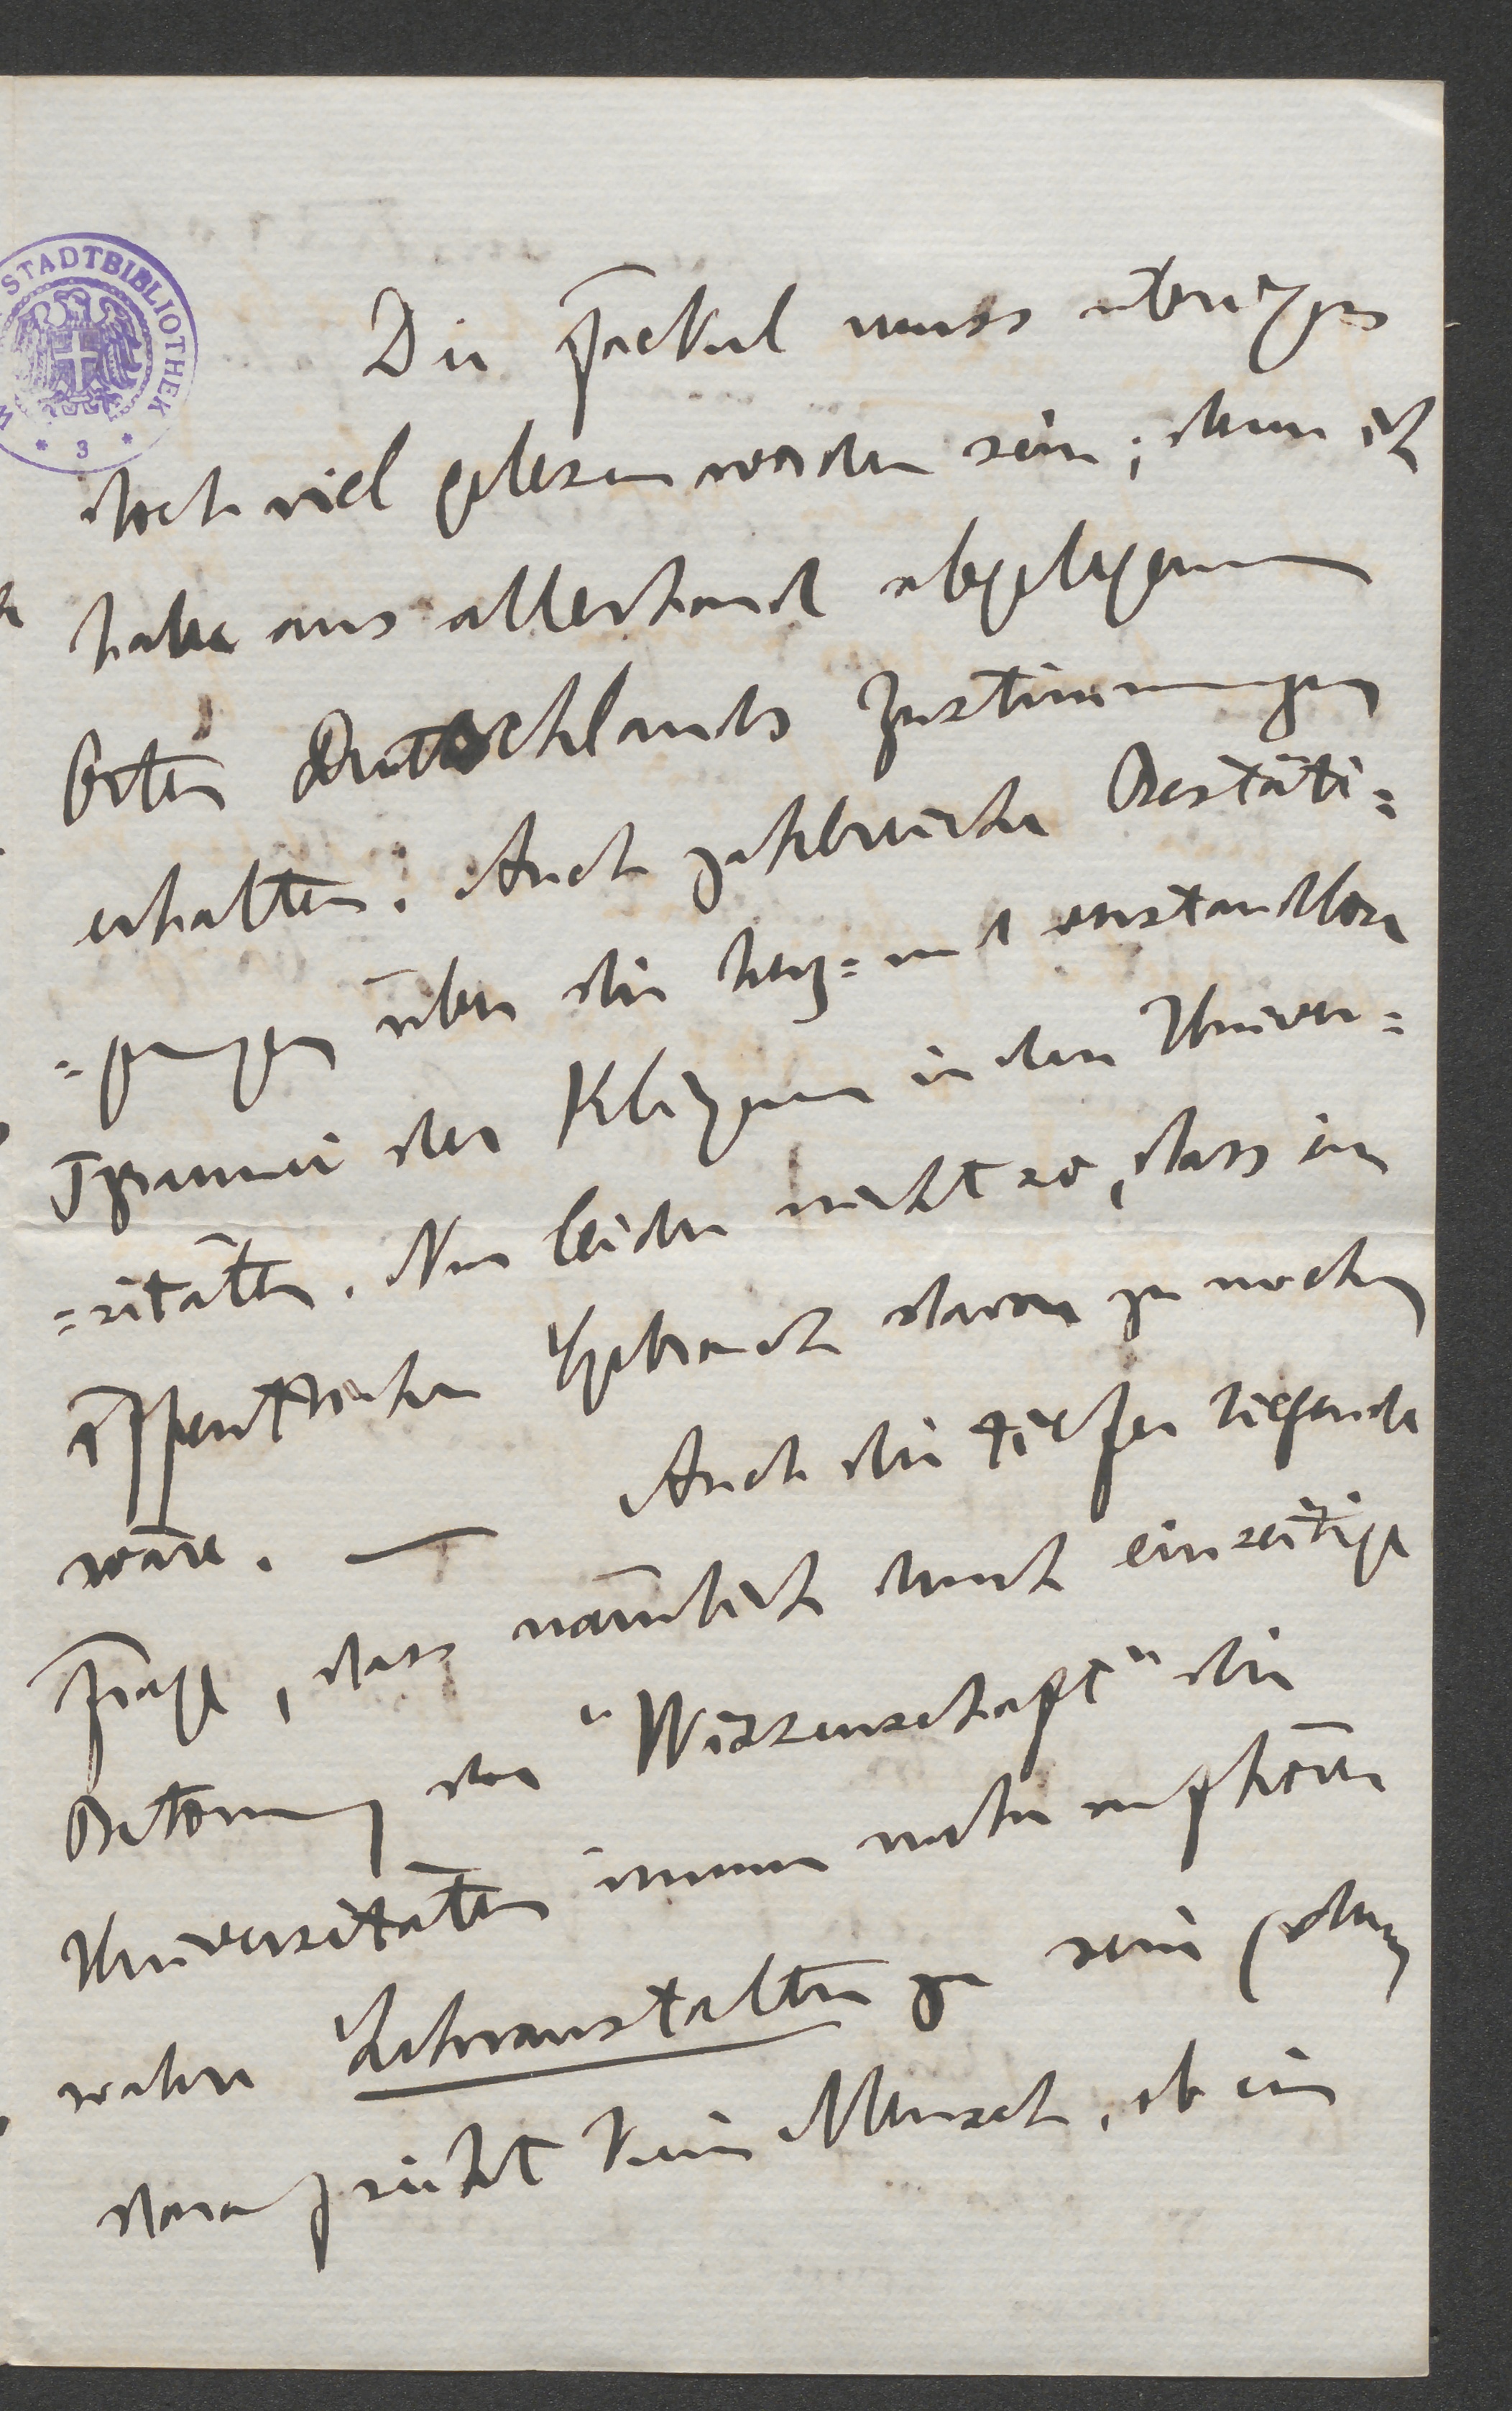 STADTBIBLIOTHEK
* 3 *
Die Fackel muss übrigens
doch viel gelesen worden sein; denn ich
habe aus allerhand abgelegenen
Orten Deutschlands Zustimmungen
erhalten. Auch zahlreiche Bestäti=
=gungen über die herz= und verstandlose
Tyrannei der Kliquen in den Univer=
=sitäten. Nur leider nicht so, dass ein
öffentlicher Gebrauch davon zu machen
wäre. — Auch die tiefer liegende
Frage, dass nämlich durch einseitige
Betonung der "Wissenschaft" die
Universitäten immer mehr aufhören
wahre Lehranstalten zu sein (denn
darauf sieht kein Mensch, ob ein